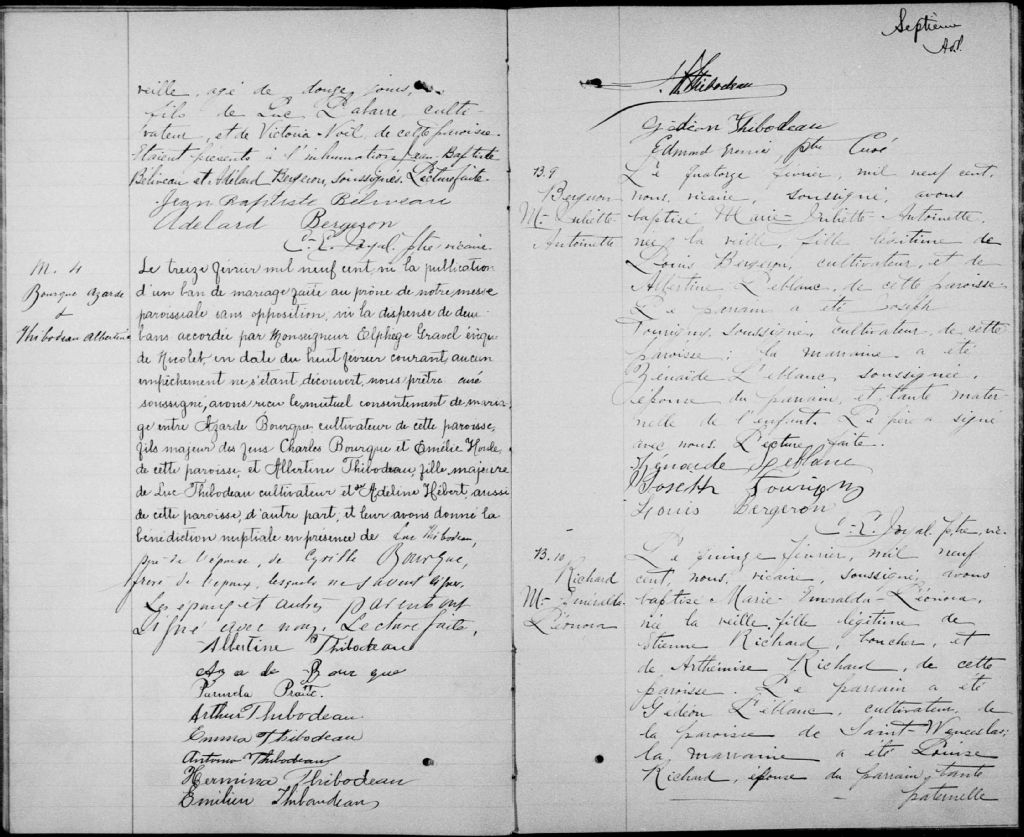 veille, agé de douze jours,
fils de Luc Labarre, culti
vateur, et de Victoria Noël, de cette paroisse.
Etaient présents à l'inhumation Jean-Baptiste
Béliveau et Adélard Bergeron, soussignés. Lecture faite.
Jean Baptiste Béliveau
Adelard Bergeron
ptre vicaire
M. 4
Bourque Azarde
&
Thibodeau Albertine
Le treize février mil neuf cent, vu la publication
d'un ban de mariage faite au prône de notre messe
paroissiale sans opposition, vu la dispense de deux
bans accordée par Monseigneur Elphège Gravel évêque
de Nicolet, en date du huit février courant, aucun
empêchement ne s'étant découvert, nous prêtre curé
soussigné, avons reçu le mutuel consentement de maria
ge entre Azarde Bourque cultivateur de cette paroisse,
fils majeur des feus Charles Bourque et Emélie Houle,
de cette paroisse, et Albertine Thibodeau, fille majeure
de Luc Thibodeau cultivateur et de Adeline Hébert, aussi
de cette paroisse, d'autre part, et leur avons donné la
bénédiction nuptiale en présence de Luc Thibodeau,
père de l'épouse, de Cyrille Bourque,
frère de l'epoux, lesquels ne savent signer.
Les epoux et autres parents ont
signé avec nous. Lecture faite.
Albertine Thibodeau
Azade Bourque
Parmela Pratte.
Arthur Thibodeau
Emma Thibodeau
Antonio Thibodeau
Hermina Thibodeau
Emilien Thibaudeau
Septième
Thibodeau
Gédéon Thibodeau
Edmond ptre Curé
B. 9
Bergeron
M.- Juliette
Antoinette
Le quatorze février, mil neuf cent,
nous, vicaire, soussigné, avons
baptisé Marie-Juliette-Antoinette,
née la veille, fille légitime de
Louis Bergeron, cultivateur, et de
Albertine Leblanc, de cette paroisse.
Le parrain a été Joseph
Tourigny, soussigné, cultivateur de cette
paroisse; la marraine a été
Zénaïde Leblanc, soussignée,
épouse du parrain, et tante mater-
nelle de l'enfant. Le père a signé
avec nous. Lecture faite.
Zénaide Leblanc
Joseph Tourigny
Louis Bergeron
ptre, vic.
B. 10
Richard
M.- Emérelda
Léonora
Le quinze février, mil neuf
cent, nous, vicaire, soussigné, avons
baptisé Marie-Emeralda-Léonora,
née la veille, fille légitime de
Etienne Richard, boucher, et
de Arthémise Richard, de cette
paroisse. Le parrain a été
Gédéon Leblanc, cultivateur, de
la paroisse de Saint-Wenceslas;
la marraine a été Louise
Richard, épouse du parrain, tante
paternelle